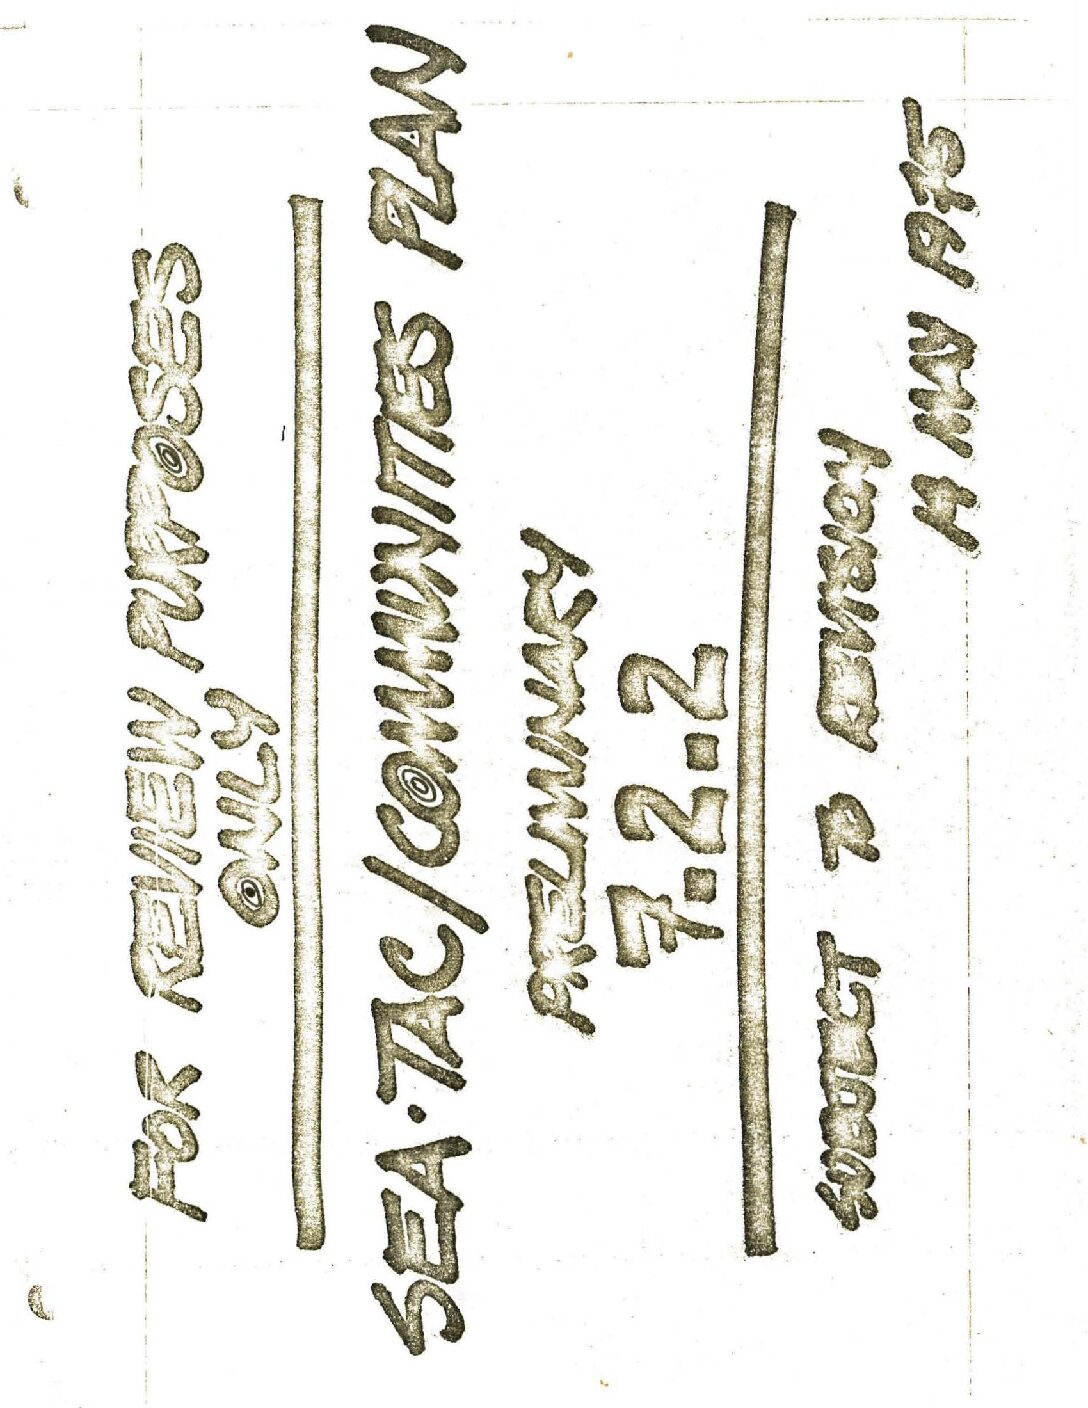 FOR REVIEW PURPOSES
ONLY
SEA·TAC/COMMUNITIES PLAN
PRELIMINARY
7.2.2
SUBJECT TO REVISION
14 MAY 1975